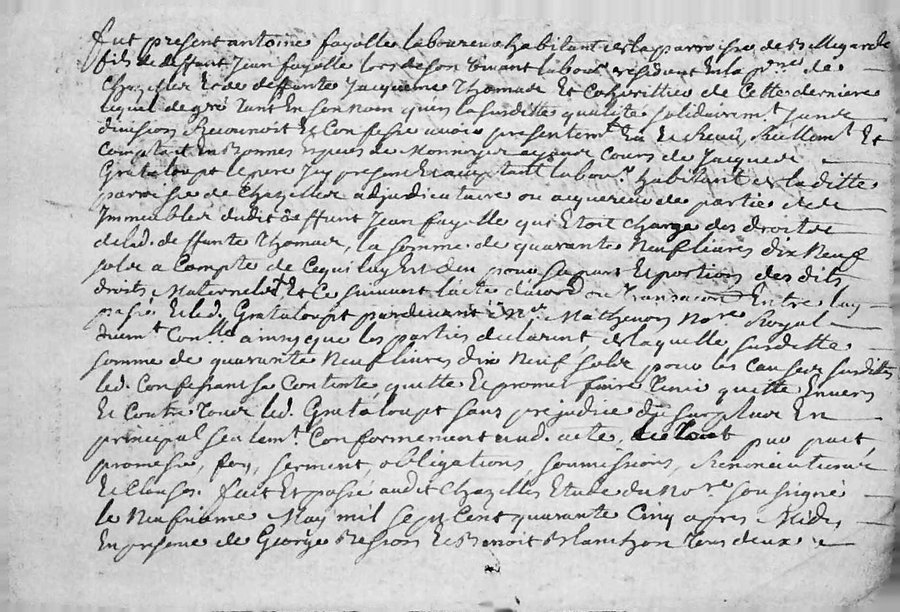 fut present antoine fayolle laboureur habitant en la parroisse de St Megarde
fils de deffunt Jean fayolle lors de son vivant labour. residant en la p.sse de
Chazelles et de deffunte Jacqueme Thomas Et Coheritier de Cette derniere
lequel de gré tant En son nom qu'en la susditte qualité solidairem.t sans
division Reconnoit Et Confesse avoir presentem.t Eu et Receu Reellem.t Et
Comptant En Bonnes Especes de Monnoye ayans Cours de Jacques
Grataloupt le pere Icy present Et acceptant labou.r habitant en laditte
parroisse de Chazelles adjudicataire ou acquereur de partie des
Immeubles dudit deffunt Jean fayolle qui Etoit Chargé des droits de
delad. deffunte Thomas, la somme de quarante Neuf livres dix Neuf
sols a Compte de Ce qui luy Est deu pour sa part Et portion des dits
droits Maternels Et Ce suivant l'acte d'acord ou Transaction Entre luy
passé Et led. Grataloupt pardevant M.e Mathevon No.re Royal
ainsy que les parties declarent de laquelle susditte
somme de quarante Neuf livres dix Neuf sols pour les Causes susdittes
led. Confessant se Contente quitte Et promet faire Tenir quitte Envers
Et Contre Tous led. Grataloupt sans prejudice du surplus En
principal seulem.t Conformement aud. acte, de tout par pact
promesse, foy, serment, obligations, soumissions, Renonciations
et Clauses. fait Et passé audit Chazelles Etude du No.re soussigné
le Neufvieme May mil sept Cent quarante Cinq apres Midy
En presence de George Besson et Benoit Blanchon tous deux